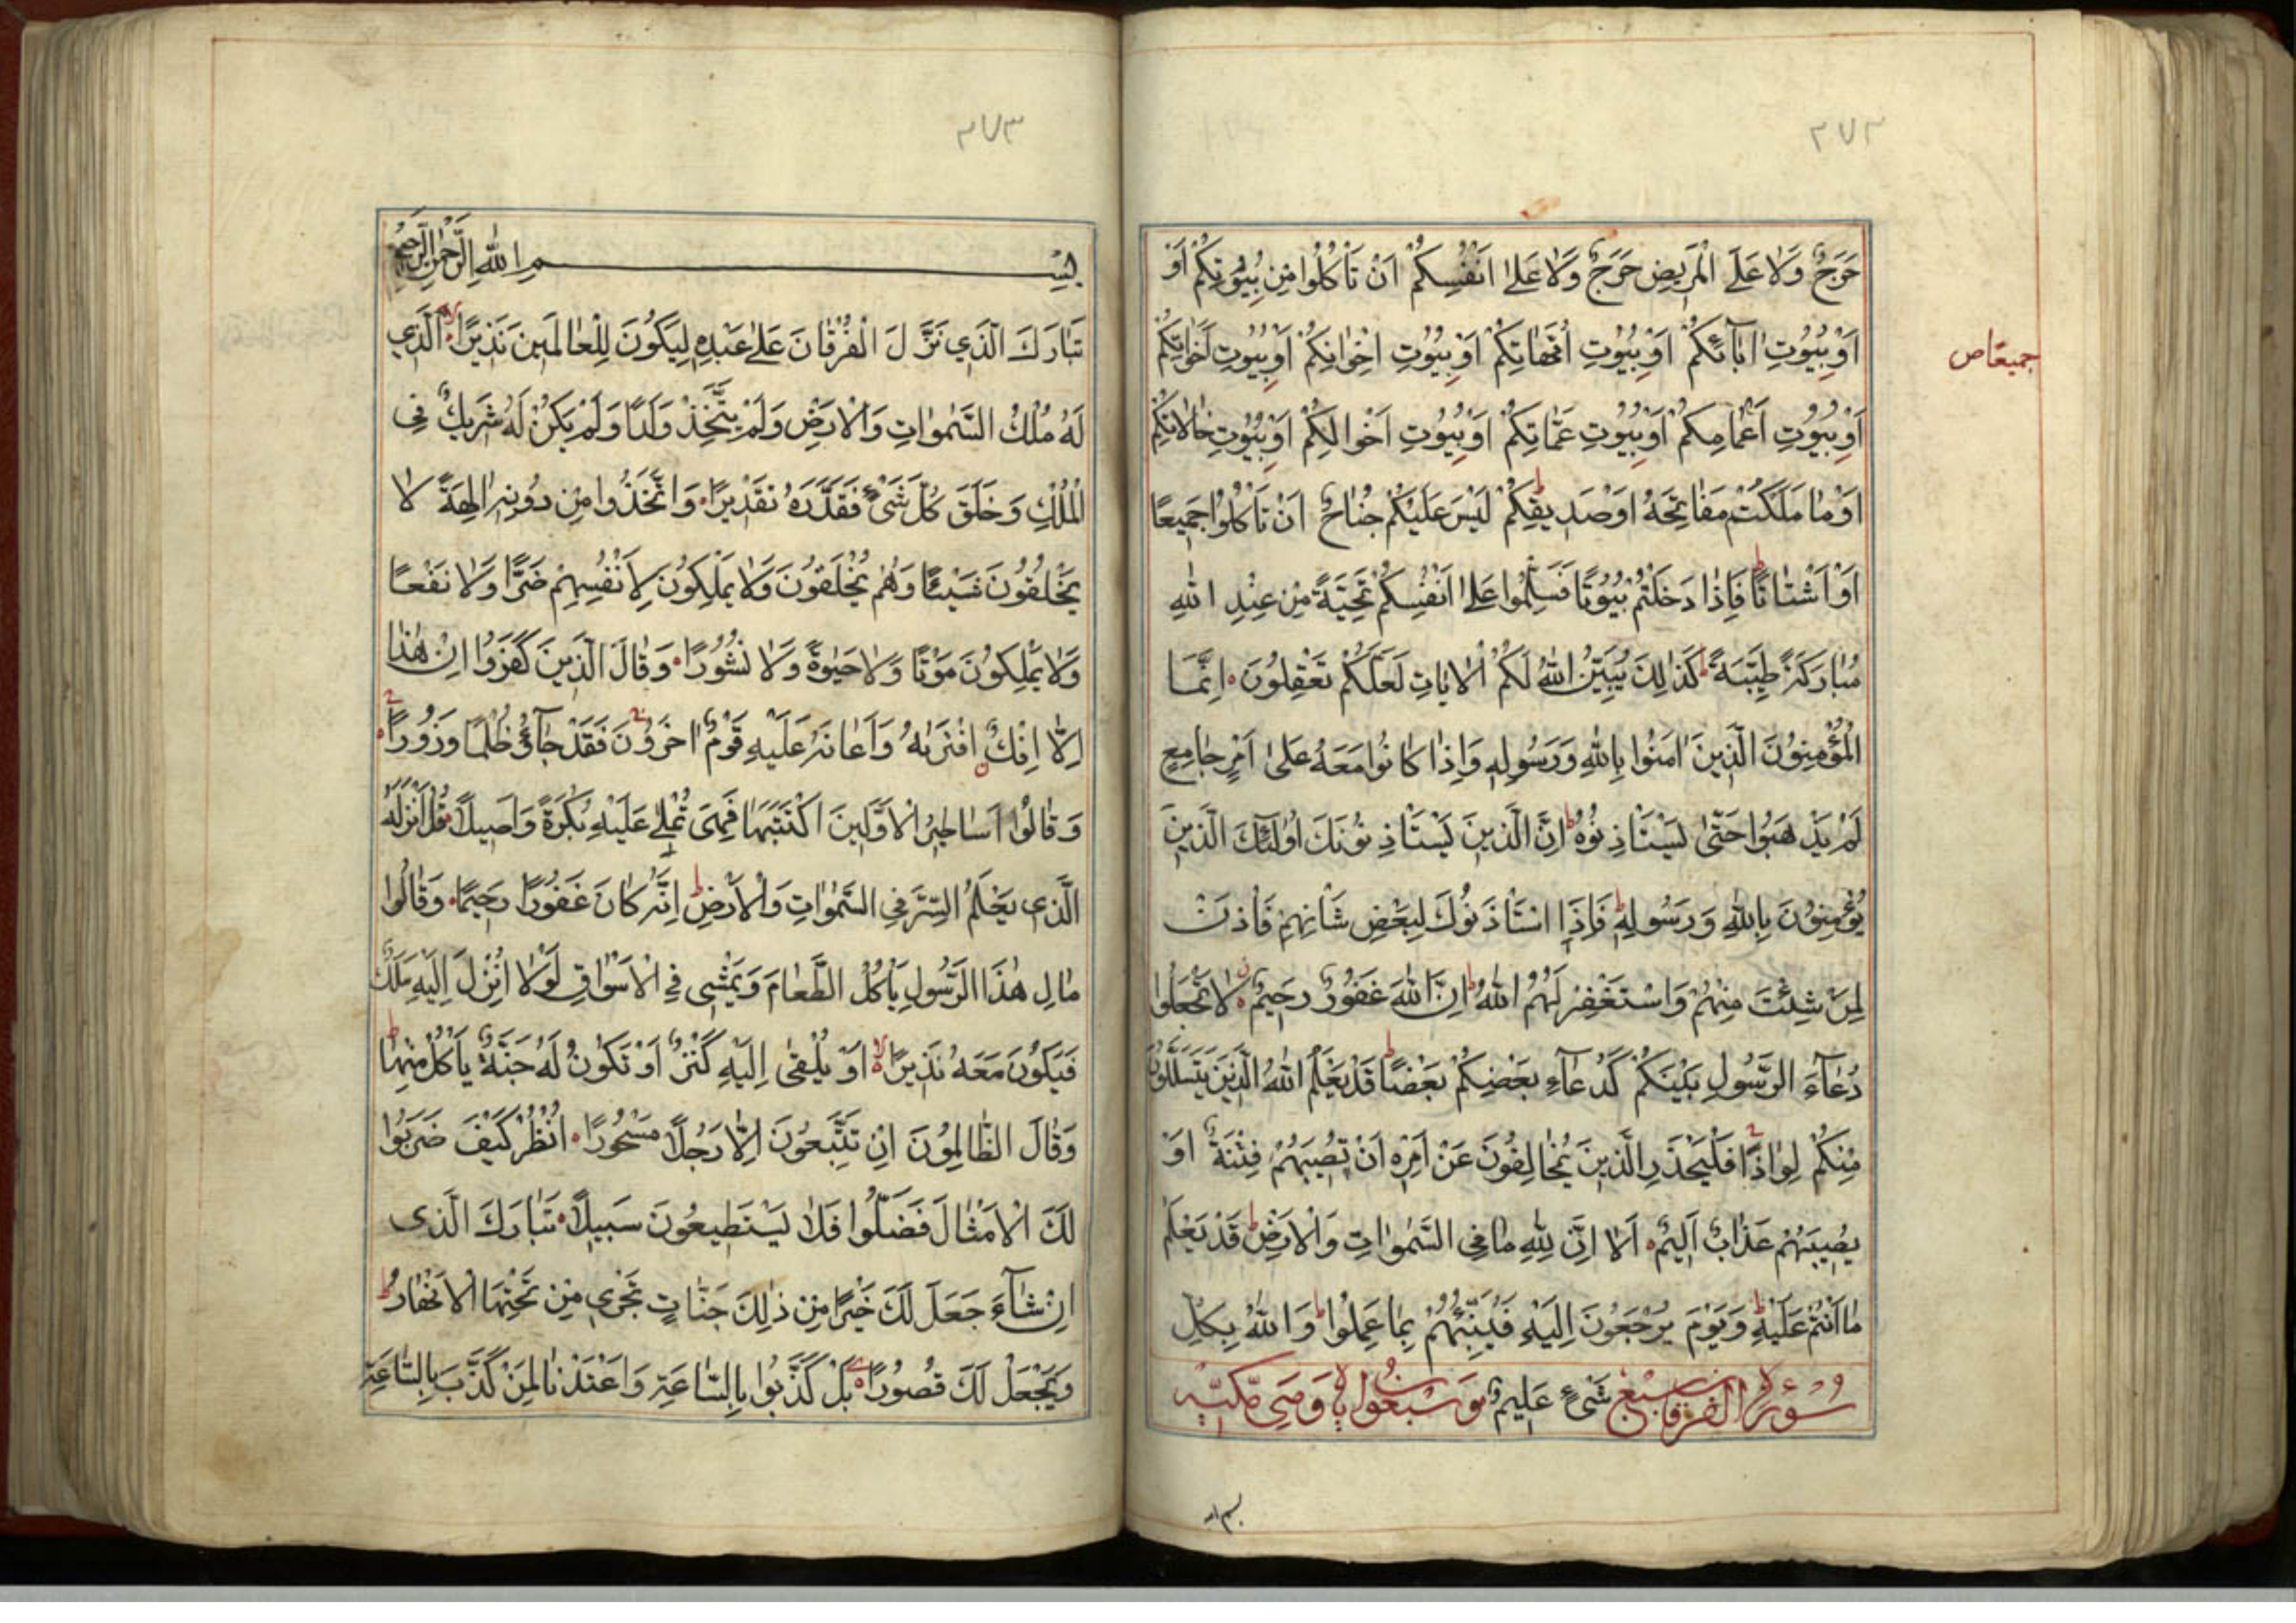 ٢٧٢
حَرَجٌ وَلَا عَلَى الْمَرِيضِ حَرَجٌ وَلَا عَلَىٰ اَنْفُسِكُمْ اَنْ تَاْكُلُوا مِنْ بُيُوتِكُمْ اَوْ
اَوْ بُيُوتِ اٰبَآئِكُمْ اَوْ بُيُوتِ اُمَّهَاتِكُمْ اَوْ بُيُوتِ اِخْوَانِكُمْ اَوْ بُيُوتِ اَخَوَاتِكُمْ
جميعًا ص
اَوْ بُيُوتِ اَعْمَامِكُمْ اَوْ بُيُوتِ عَمَّاتِكُمْ اَوْ بُيُوتِ اَخْوَالِكُمْ اَوْ بُيُوتِ خَالَاتِكُمْ
اَوْ مَا مَلَكْتُمْ مَفَاتِحَهُ اَوْ صَدِيقِكُمْ ط لَيْسَ عَلَيْكُمْ جُنَاحٌ اَنْ تَاْكُلُوا جَمِيعًا
اَوْ اَشْتَاتًا ط فَاِذَا دَخَلْتُمْ بُيُوتًا فَسَلِّمُوا عَلَىٰ اَنْفُسِكُمْ تَحِيَّةً مِنْ عِنْدِ اللّٰهِ
مُبَارَكَةً طَيِّبَةً ط كَذٰلِكَ يُبَيِّنُ اللّٰهُ لَكُمُ الْاٰيَاتِ لَعَلَّكُمْ تَعْقِلُونَ ۰ اِنَّمَا
الْمُؤْمِنُونَ الَّذِينَ اٰمَنُوا بِاللّٰهِ وَرَسُولِهِ وَاِذَا كَانُوا مَعَهُ عَلَىٰ اَمْرٍ جَامِعٍ
لَمْ يَذْهَبُوا حَتّٰى يَسْتَاْذِنُوهُ ط اِنَّ الَّذِينَ يَسْتَاْذِنُونَكَ اُولٰئِكَ الَّذِينَ
يُؤْمِنُونَ بِاللّٰهِ وَرَسُولِهِ ط فَاِذَا اسْتَاْذَنُوكَ لِبَعْضِ شَاْنِهِمْ فَاْذَنْ
لِمَنْ شِئْتَ مِنْهُمْ وَاسْتَغْفِرْ لَهُمُ اللّٰهَ ط اِنَّ اللّٰهَ غَفُورٌ رَحِيمٌ ۰ لَا تَجْعَلُوا
دُعَآءَ الرَّسُولِ بَيْنَكُمْ كَدُعَآءِ بَعْضِكُمْ بَعْضًا ط قَدْ يَعْلَمُ اللّٰهُ الَّذِينَ يَتَسَلَّلُونَ
مِنْكُمْ لِوَاذًا ج فَلْيَحْذَرِ الَّذِينَ يُخَالِفُونَ عَنْ اَمْرِهِ اَنْ تُصِيبَهُمْ فِتْنَةٌ اَوْ
يُصِيبَهُمْ عَذَابٌ اَلِيمٌ ۰ اَلَا اِنَّ لِلّٰهِ مَا فِي السَّمٰوَاتِ وَالْاَرْضِ ط قَدْ يَعْلَمُ
مَا اَنْتُمْ عَلَيْهِ ط وَيَوْمَ يُرْجَعُونَ اِلَيْهِ فَيُنَبِّئُهُمْ بِمَا عَمِلُوا ط وَاللّٰهُ بِكُلِّ
سُورَةُ الفرقان سبع شَيْءٍ عَلِيمٌ وسبعون اية وهي مكيّة
بسم الله
٢٧٣
بِسْمِ اللّٰهِ الرَّحْمٰنِ الرَّحِيمِ
تَبَارَكَ الَّذِي نَزَّلَ الْفُرْقَانَ عَلَىٰ عَبْدِهِ لِيَكُونَ لِلْعَالَمِينَ نَذِيرًا ۰ لا الَّذِي
لَهُ مُلْكُ السَّمٰوَاتِ وَالْاَرْضِ وَلَمْ يَتَّخِذْ وَلَدًا وَلَمْ يَكُنْ لَهُ شَرِيكٌ فِي
الْمُلْكِ وَخَلَقَ كُلَّ شَيْءٍ فَقَدَّرَهُ تَقْدِيرًا ۰ وَاتَّخَذُوا مِنْ دُونِهِ اٰلِهَةً لَا
يَخْلُقُونَ شَيْئًا وَهُمْ يُخْلَقُونَ وَلَا يَمْلِكُونَ لِاَنْفُسِهِمْ ضَرًّا وَلَا نَفْعًا
وَلَا يَمْلِكُونَ مَوْتًا وَلَا حَيٰوةً وَلَا نُشُورًا ۰ وَقَالَ الَّذِينَ كَفَرُوا اِنْ هٰذَا
اِلَّا اِفْكٌ افْتَرٰيهُ وَاَعَانَهُ عَلَيْهِ قَوْمٌ اٰخَرُونَ ج فَقَدْ جَآؤُ ظُلْمًا وَزُورًا ۰ ج
وَقَالُوا اَسَاطِيرُ الْاَوَّلِينَ اكْتَتَبَهَا فَهِيَ تُمْلٰى عَلَيْهِ بُكْرَةً وَاَصِيلًا ۰ قُلْ اَنْزَلَهُ
الَّذِي يَعْلَمُ السِّرَّ فِي السَّمٰوَاتِ وَالْاَرْضِ ط اِنَّهُ كَانَ غَفُورًا رَحِيمًا ۰ وَقَالُوا
مَالِ هٰذَا الرَّسُولِ يَاْكُلُ الطَّعَامَ وَيَمْشِي فِي الْاَسْوَاقِ لَوْلَا اُنْزِلَ اِلَيْهِ مَلَكٌ
فَيَكُونَ مَعَهُ نَذِيرًا ۰ لا اَوْ يُلْقٰى اِلَيْهِ كَنْزٌ اَوْ تَكُونُ لَهُ جَنَّةٌ يَاْكُلُ مِنْهَا ط
وَقَالَ الظَّالِمُونَ اِنْ تَتَّبِعُونَ اِلَّا رَجُلًا مَسْحُورًا ۰ اُنْظُرْ كَيْفَ ضَرَبُوا
لَكَ الْاَمْثَالَ فَضَلُّوا فَلَا يَسْتَطِيعُونَ سَبِيلًا ۰ تَبَارَكَ الَّذِي
اِنْ شَآءَ جَعَلَ لَكَ خَيْرًا مِنْ ذٰلِكَ جَنَّاتٍ تَجْرِي مِنْ تَحْتِهَا الْاَنْهَارُ ط
وَيَجْعَلْ لَكَ قُصُورًا ۰ بَلْ كَذَّبُوا بِالسَّاعَةِ وَاَعْتَدْنَا لِمَنْ كَذَّبَ بِالسَّاعَةِ